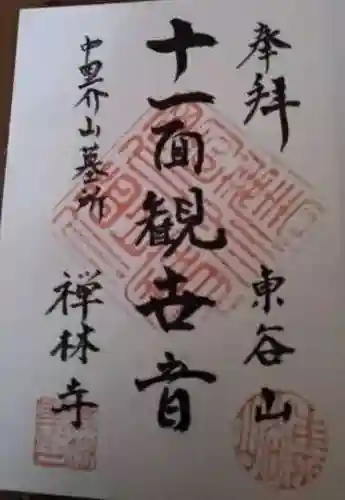 奉拝
東谷山
十一面観世音
中里介山墓所
禅林寺